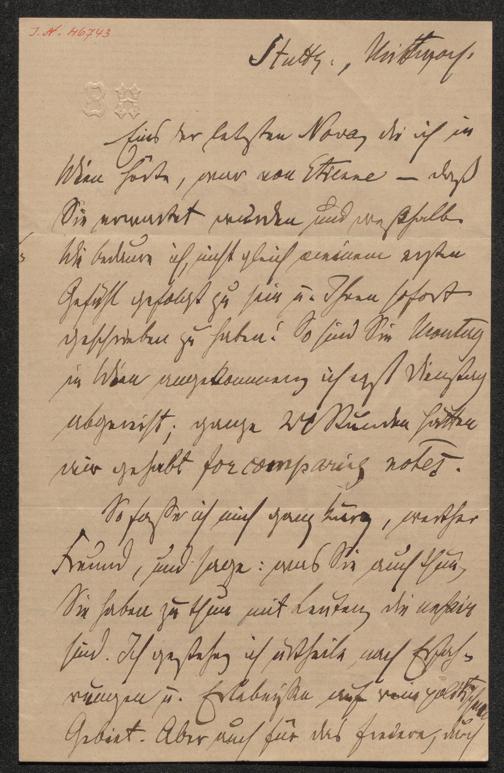 I. N. 46743
Stuttg., Mittwoch.
Eins der letzten Nova, die ich in
Wien hörte, war von Etienne — daß
Sie erwartet wurden und weßhalb.
Wie bedaure ich, nicht gleich meinem ersten
Gefühl gefolgt zu sein u. Ihnen sofort
geschrieben zu haben! So sind Sie Montag
in Wien angekommen, ich erst Dienstag
abgereist; ganze 24 Stunden hätten
wir gehabt for comparing notes.
So fasse ich mich ganz kurz, werther
Freund, und sage: was Sie auch thun,
Sie haben zu thun mit Leuten, die unfair
sind. Ich gestehe, ich urtheile nach Erfah-
rungen u. Erlebnißen auf rein politischem
Gebiet. Aber auch für das andere, durch